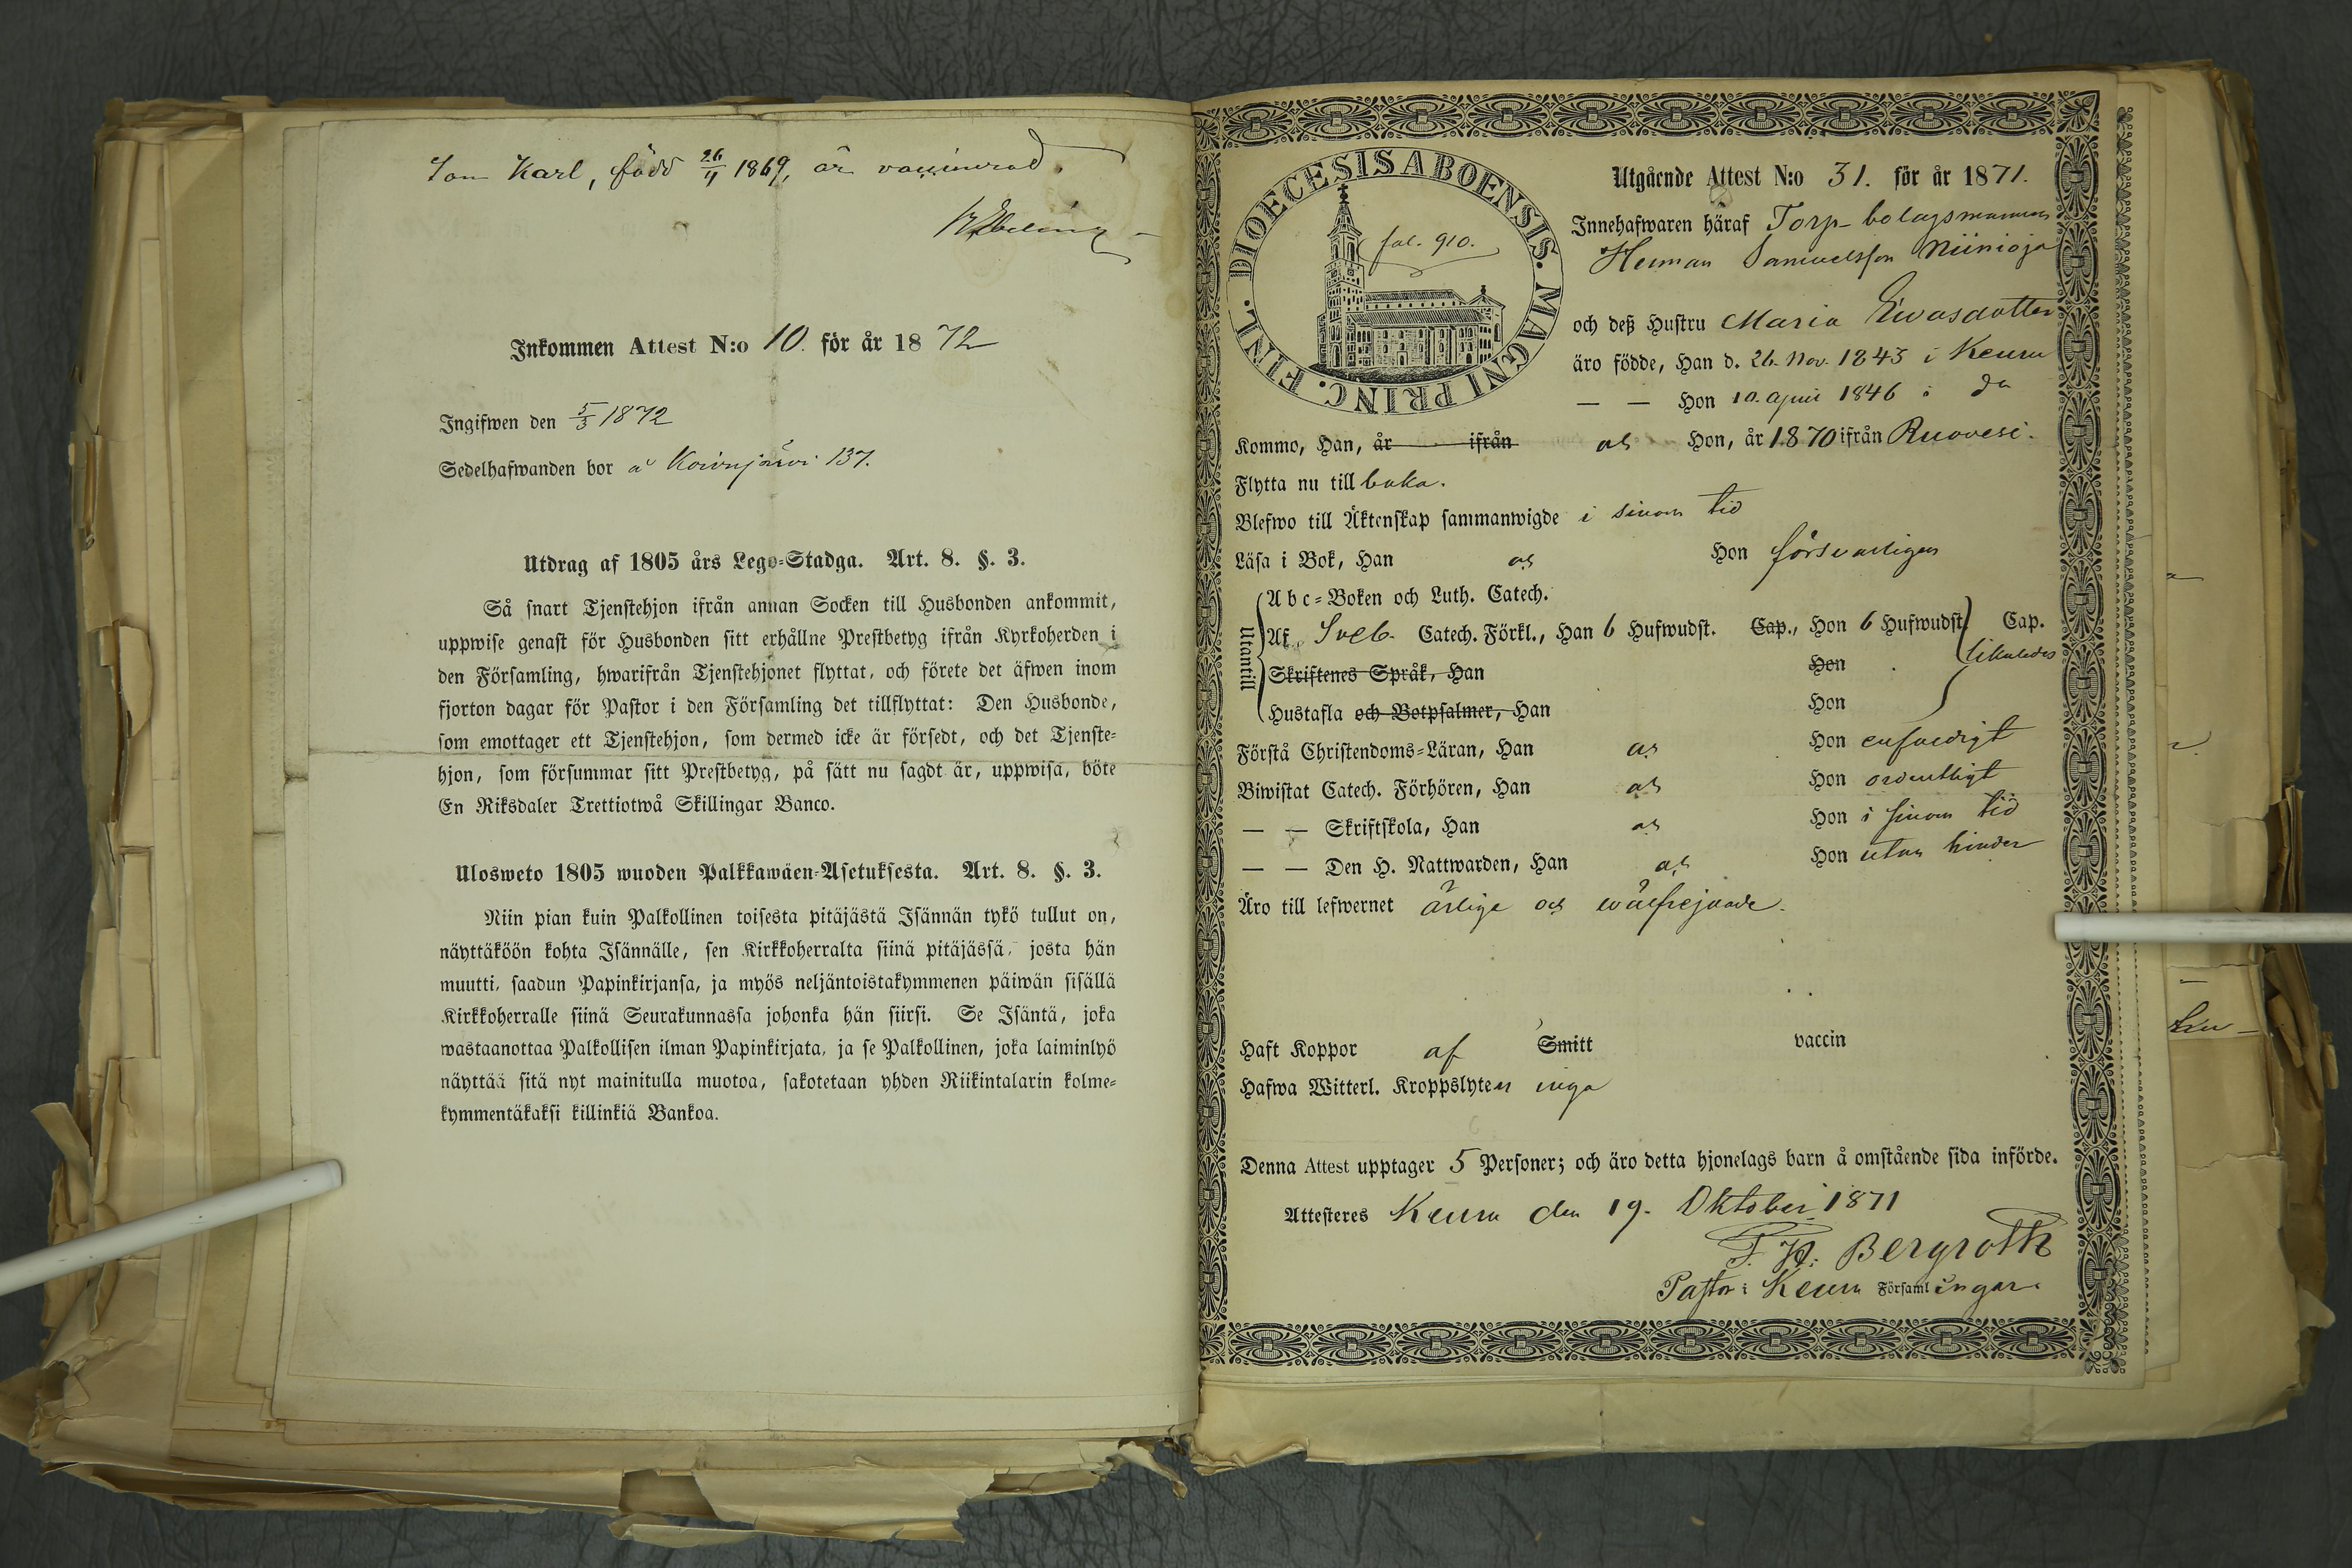 Son Karl, född 26/11 1869, är vaccinerad.
Inkommen Attest N:o 10. för år 1872
Ingifwen den 5/3 1872
Sedelhafwanden bor å Koivujärvi 137.
Utdrag af 1805 års Lego-Stadga. Art. 8. §. 3.
Så snart Tjenstehjon ifrån annan Socken till Husbonden ankommit,
uppwise genast för Husbonden sitt erhållne Prestbetyg ifrån Kyrkoherden i
den Församling, hwarifrån Tjenstehjonet flyttat, och förete det äfwen inom
fjorton dagar för Pastor i den Församling det tillflyttat: Den Husbonde,
som emottager ett Tjenstehjon, som dermed icke är försedt, och det Tjenste-
hjon, som försummar sitt Prestbetyg, på sätt nu sagdt är, uppwisa, böte
En Riksdaler Trettiotwå Skillingar Banco.
Ulosweto 1805 wuoden Palkkawäen-Asetuksesta. Art. 8. §. 3.
Niin pian kuin Palkollinen toisesta pitäjästä Isännän tykö tullut on,
näyttäköön kohta Isännälle, sen Kirkkoherralta siinä pitäjässä, josta hän
muutti, saadun Papinkirjansa, ja myös neljäntoistakymmenen päiwän sisällä
Kirkkoherralle siinä Seurakunnassa johonka hän siirsi. Se Isäntä, joka
wastaanottaa Palkollisen ilman Papinkirjata, ja se Palkollinen, joka laiminlyö
näyttää sitä nyt mainitulla muotoa, sakotetaan yhden Riikintalarin kolme-
kymmentäkaksi killinkiä Bankoa.
DIOECESIS ABOENSIS. MAGNI PRINC. FINL.
fol. 910.
Utgående Attest N:o 31. för år 1871.
Innehafwaren häraf Torp-bolagsmannen
Herman Samuelsson Niinioja
och deß Hustru Maria Evasdotter
äro födde, Han d. 26. Nov. 1843 i Keuru
— — Hon 10. April 1846 i do
Kommo, Han, år ifrån och Hon, år 1870 ifrån Ruovesi.
Flytta nu till baka.
Blefwo till Äktenskap sammanwigde i sinom tid
Läsa i Bok, Han och Hon försvarligen
Utantill
Abc-Boken och Luth. Catech.
Af Sveb. Catech. Förkl., Han 6 Hufwudst. Cap., Hon 6 Hufwudst. Cap.
Skriftenes Språk, Han Hon likaledes
Hustafla och Botpsalmer, Han Hon
Förstå Christendoms-Läran, Han och Hon enfaldigt
Biwistat Catech. Förhören, Han och Hon ordentligt
— — Skriftskola, Han och Hon i sinom tid
— — Den H. Nattwarden, Han och Hon utan hinder
Äro till lefwernet ärlige och wälfrejdade.
Haft Koppor af Smitt vaccin
Hafwa Witterl. Kroppslyten inga
Denna Attest upptager 5 Personer; och äro detta hjonelags barn å omstående sida införde.
Attesteres Keuru den 19. Oktober 1871
F. H. Bergroth
Pastor i Keuru Församlingar.